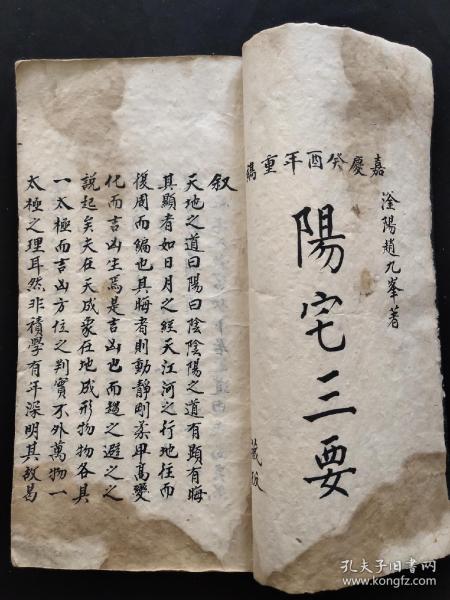 嘉慶癸酉年重鐫
滏陽趙九峯著
陽宅三要
藏板
叙
天地之道曰陽曰陰陰陽之道有顯有晦
其顯者如日月之經天江河之行地往而
復周而編也其晦者則動靜剛柔甲高變
化而吉凶生焉是吉凶也而趨之避之之
説起矣夫在天成象在地成形物物各具
一太極而吉凶方位之判實不外萬物一
太極之理耳然非積學有年深明其故曷
孔夫子旧书网
www.kongfz.com